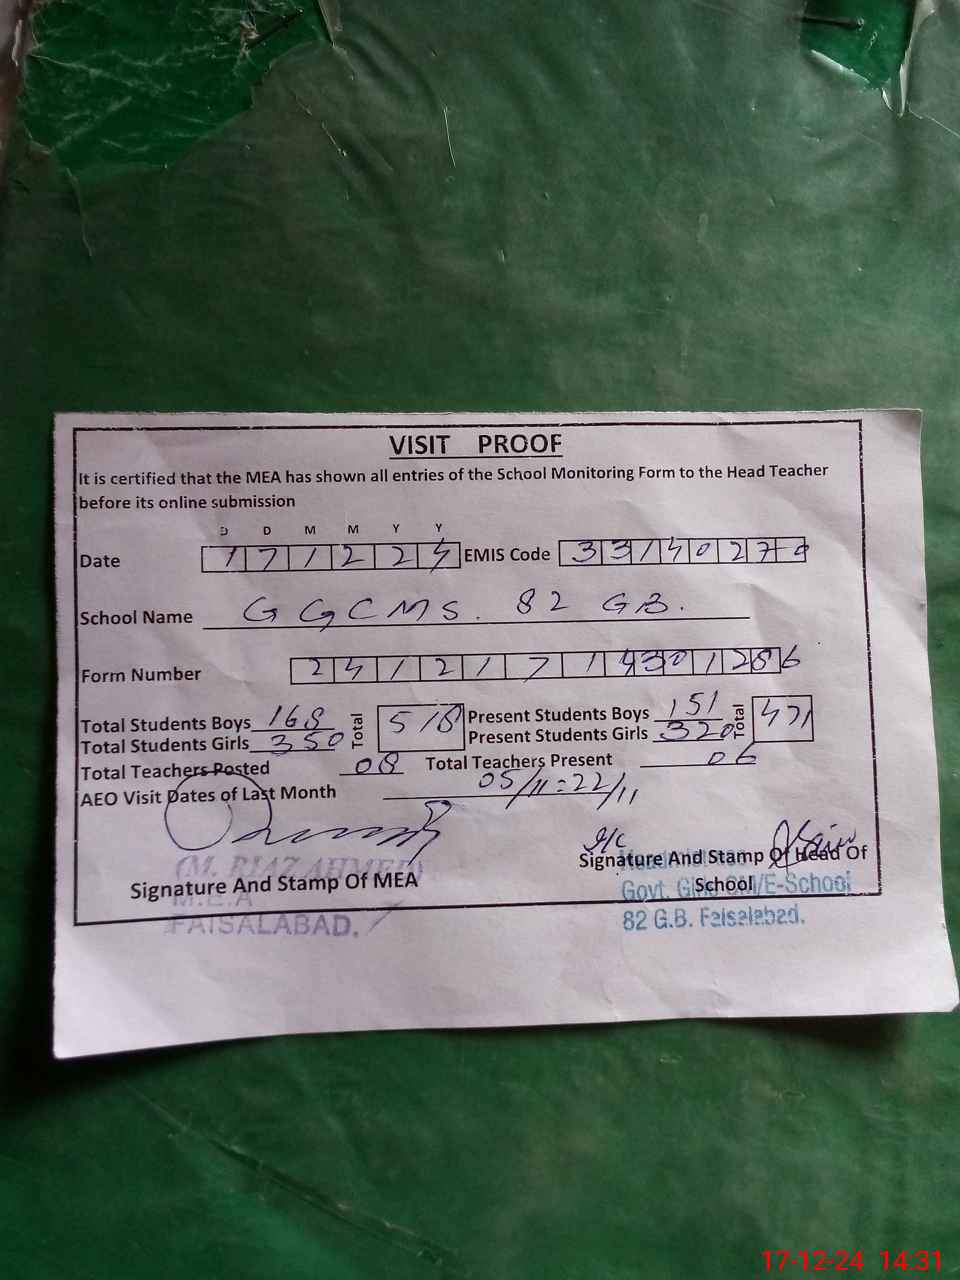 VISIT PROOF
It is certified that the MEA has shown all entries of the School Monitoring Form to the Head Teacher
before its online submission
D D M M Y Y
Date 171224 EMIS Code 33140270
School Name GGCMS. 82 GB.
Form Number 24121714301286
Total Students Boys 168 Total 518 Present Students Boys 151 Total 471
Total Students Girls 350 Present Students Girls 320
Total Teachers Posted 08 Total Teachers Present 06
AEO Visit Dates of Last Month 05/11 : 22/11
I/C
(M. RIAZ AHMED)
Signature And Stamp Of MEA
M.E.A
FAISALABAD.
Signature And Stamp Of Head Of
School
Govt. Girls CM/E-School
82 G.B. Faisalabad.
17-12-24 14:31